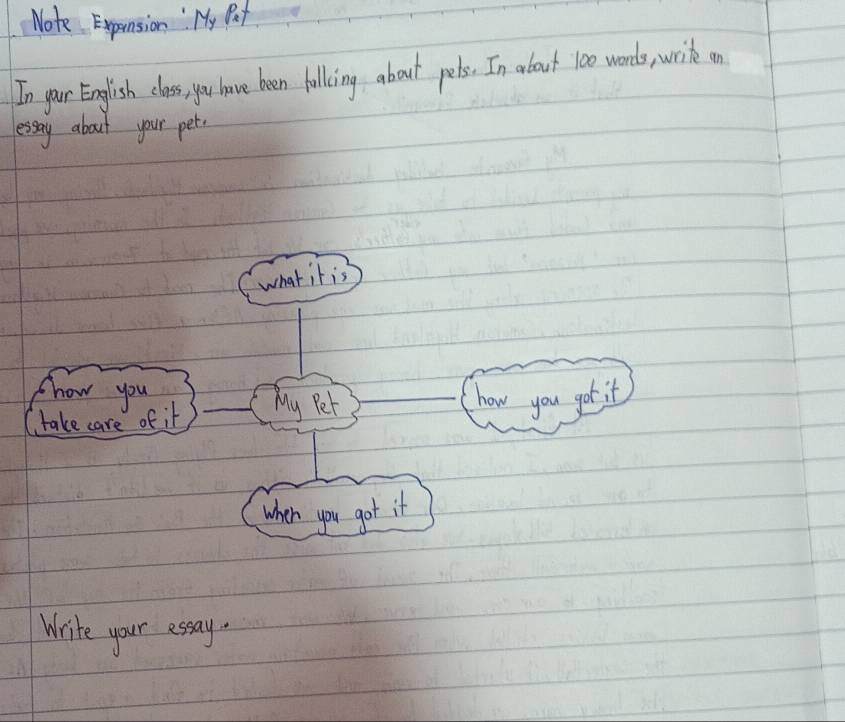 Note Expansion : My Pet
In your English class, you have been talking about pets. In about 100 words, write an
essay about your pet.
what it is
how you
take care of it
My Pet
how you got it
when you got it
Write your essay.